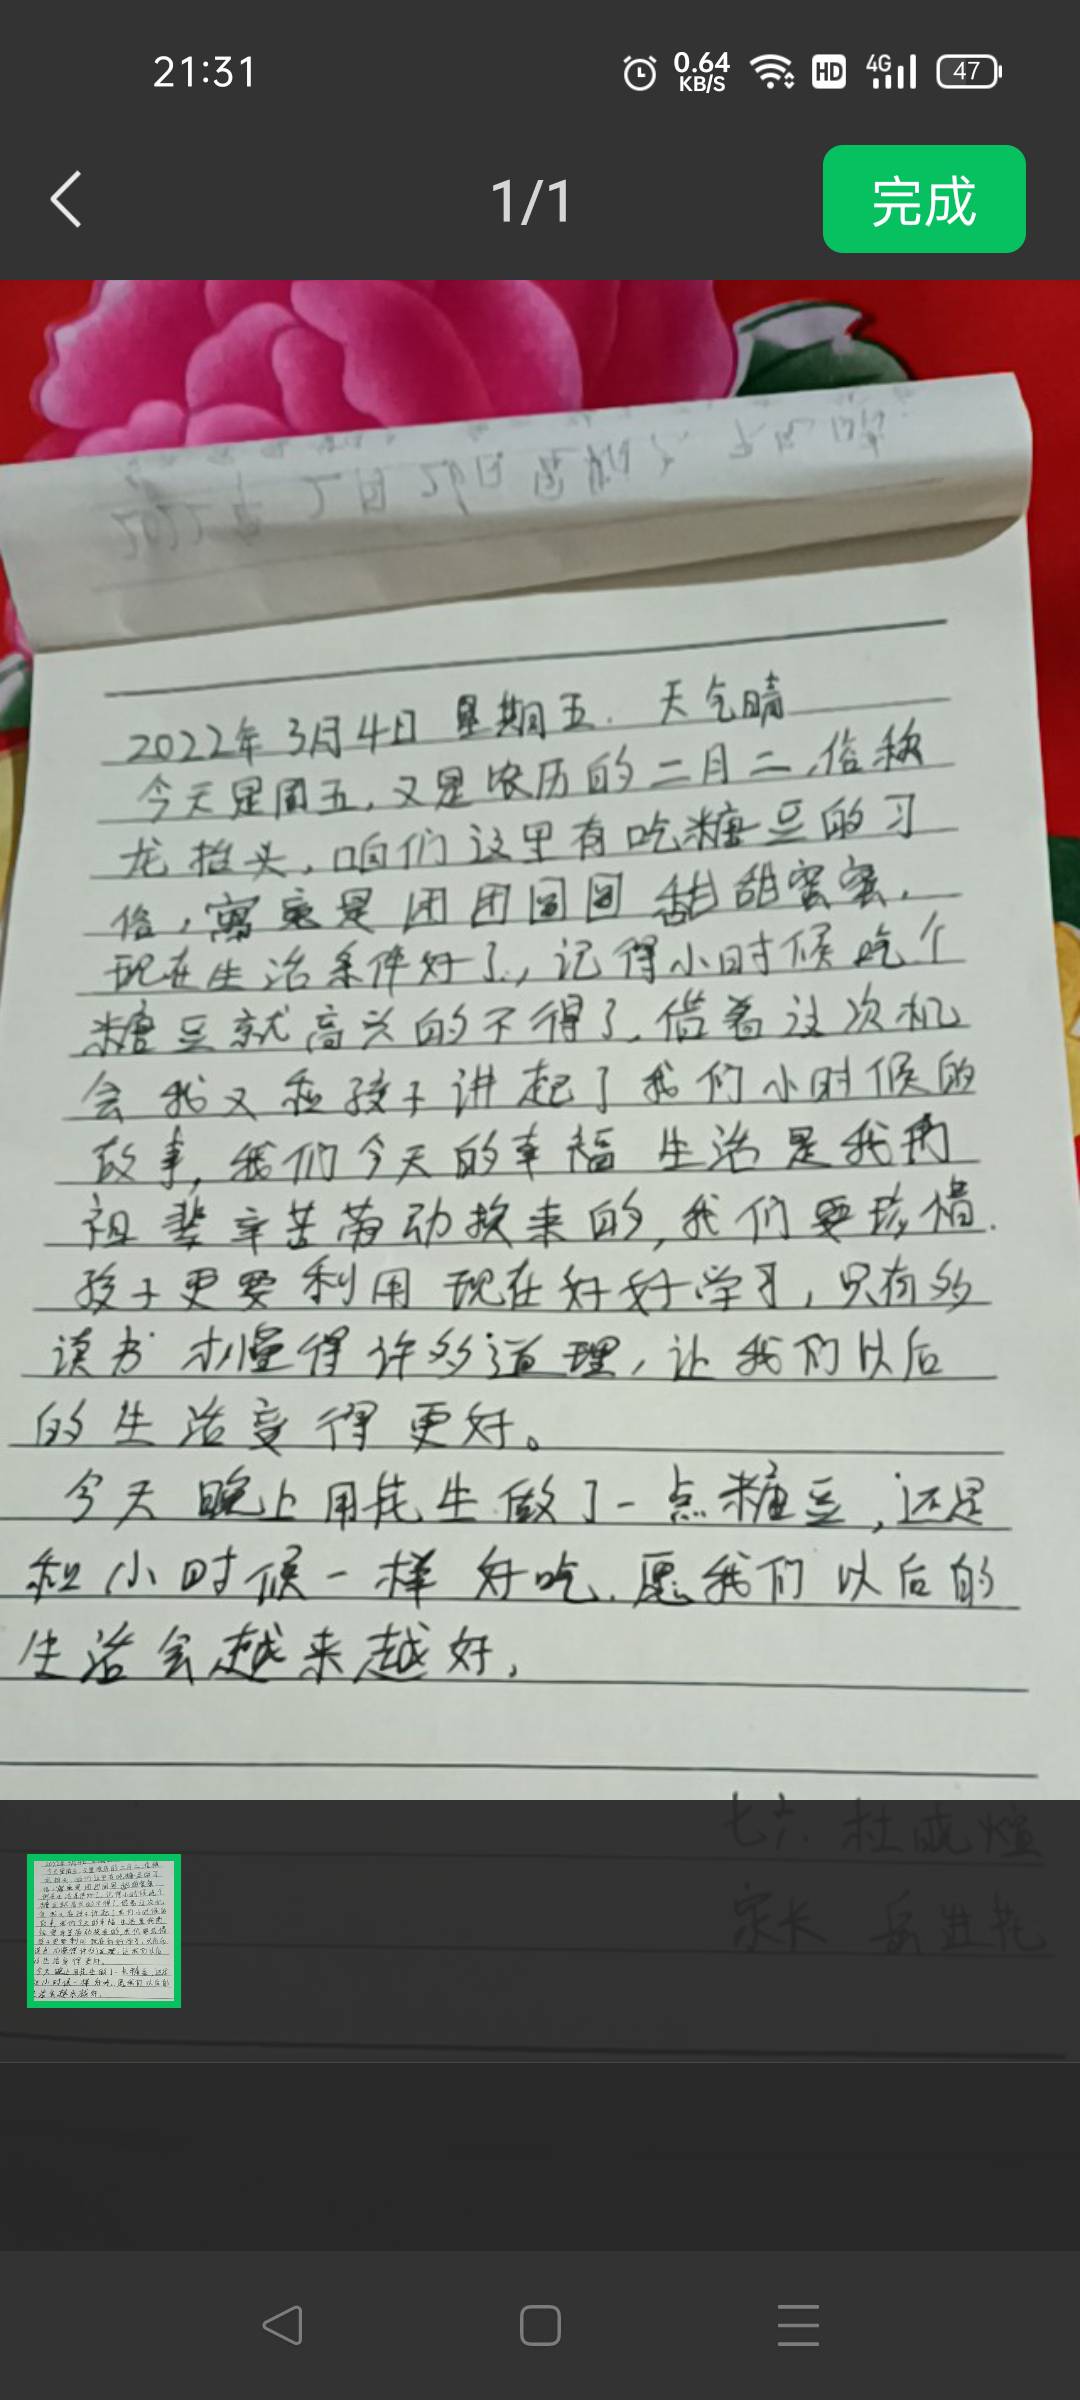 21:31
0.64
KB/S
HD
4G
47
1/1
完成
2022年3月4日 星期五. 天气晴
今天是周五,又是农历的二月二,俗称
龙抬头,咱们这里有吃糖豆的习
俗,寓意是团团圆圆 甜甜蜜蜜,
现在生活条件好了,记得小时候吃个
糖豆就高兴的不得了,借着这次机
会我又和孩子讲起了我们小时候的
故事,我们今天的幸福 生活是我们
祖辈辛苦劳动换来的,我们要珍惜.
孩子更要利用 现在好好学习,只有多
读书 才懂得许多道理,让我们以后
的生活变得更好。
今天晚上用花生做了一点糖豆,还是
和小时候一样好吃.愿我们以后的
生活会越来越好,
七六 杜成煊
家长 岳